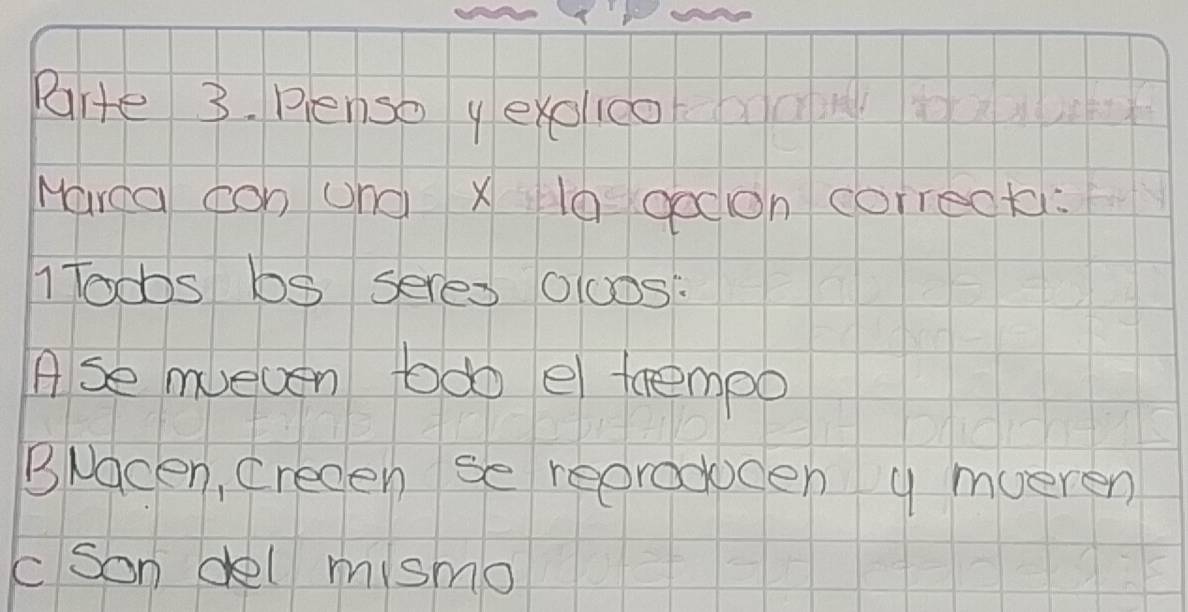 Parte 3. Pienso y explico
Marca con una x la opcion correcta:
1 Todos los seres vivos:
A Se mueven todo el tiempo
B Nacen, crecen se reproducen y mueren
C Son del mismo